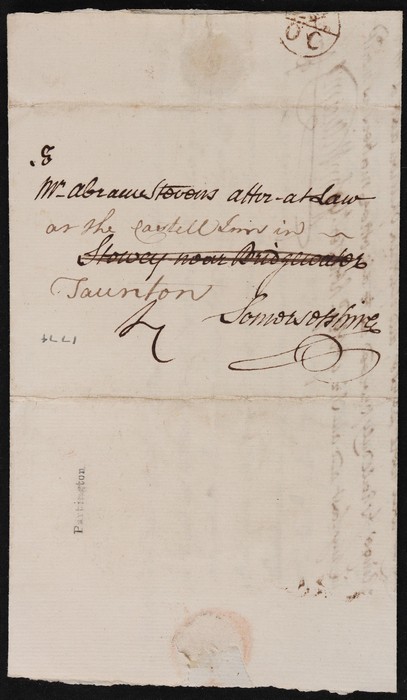 8.
Mr. Abram Stevens attor-at Law
at the Castell Inn in
Stowey near Bridgewater
Taunton
Somersetshire
1774
Partington